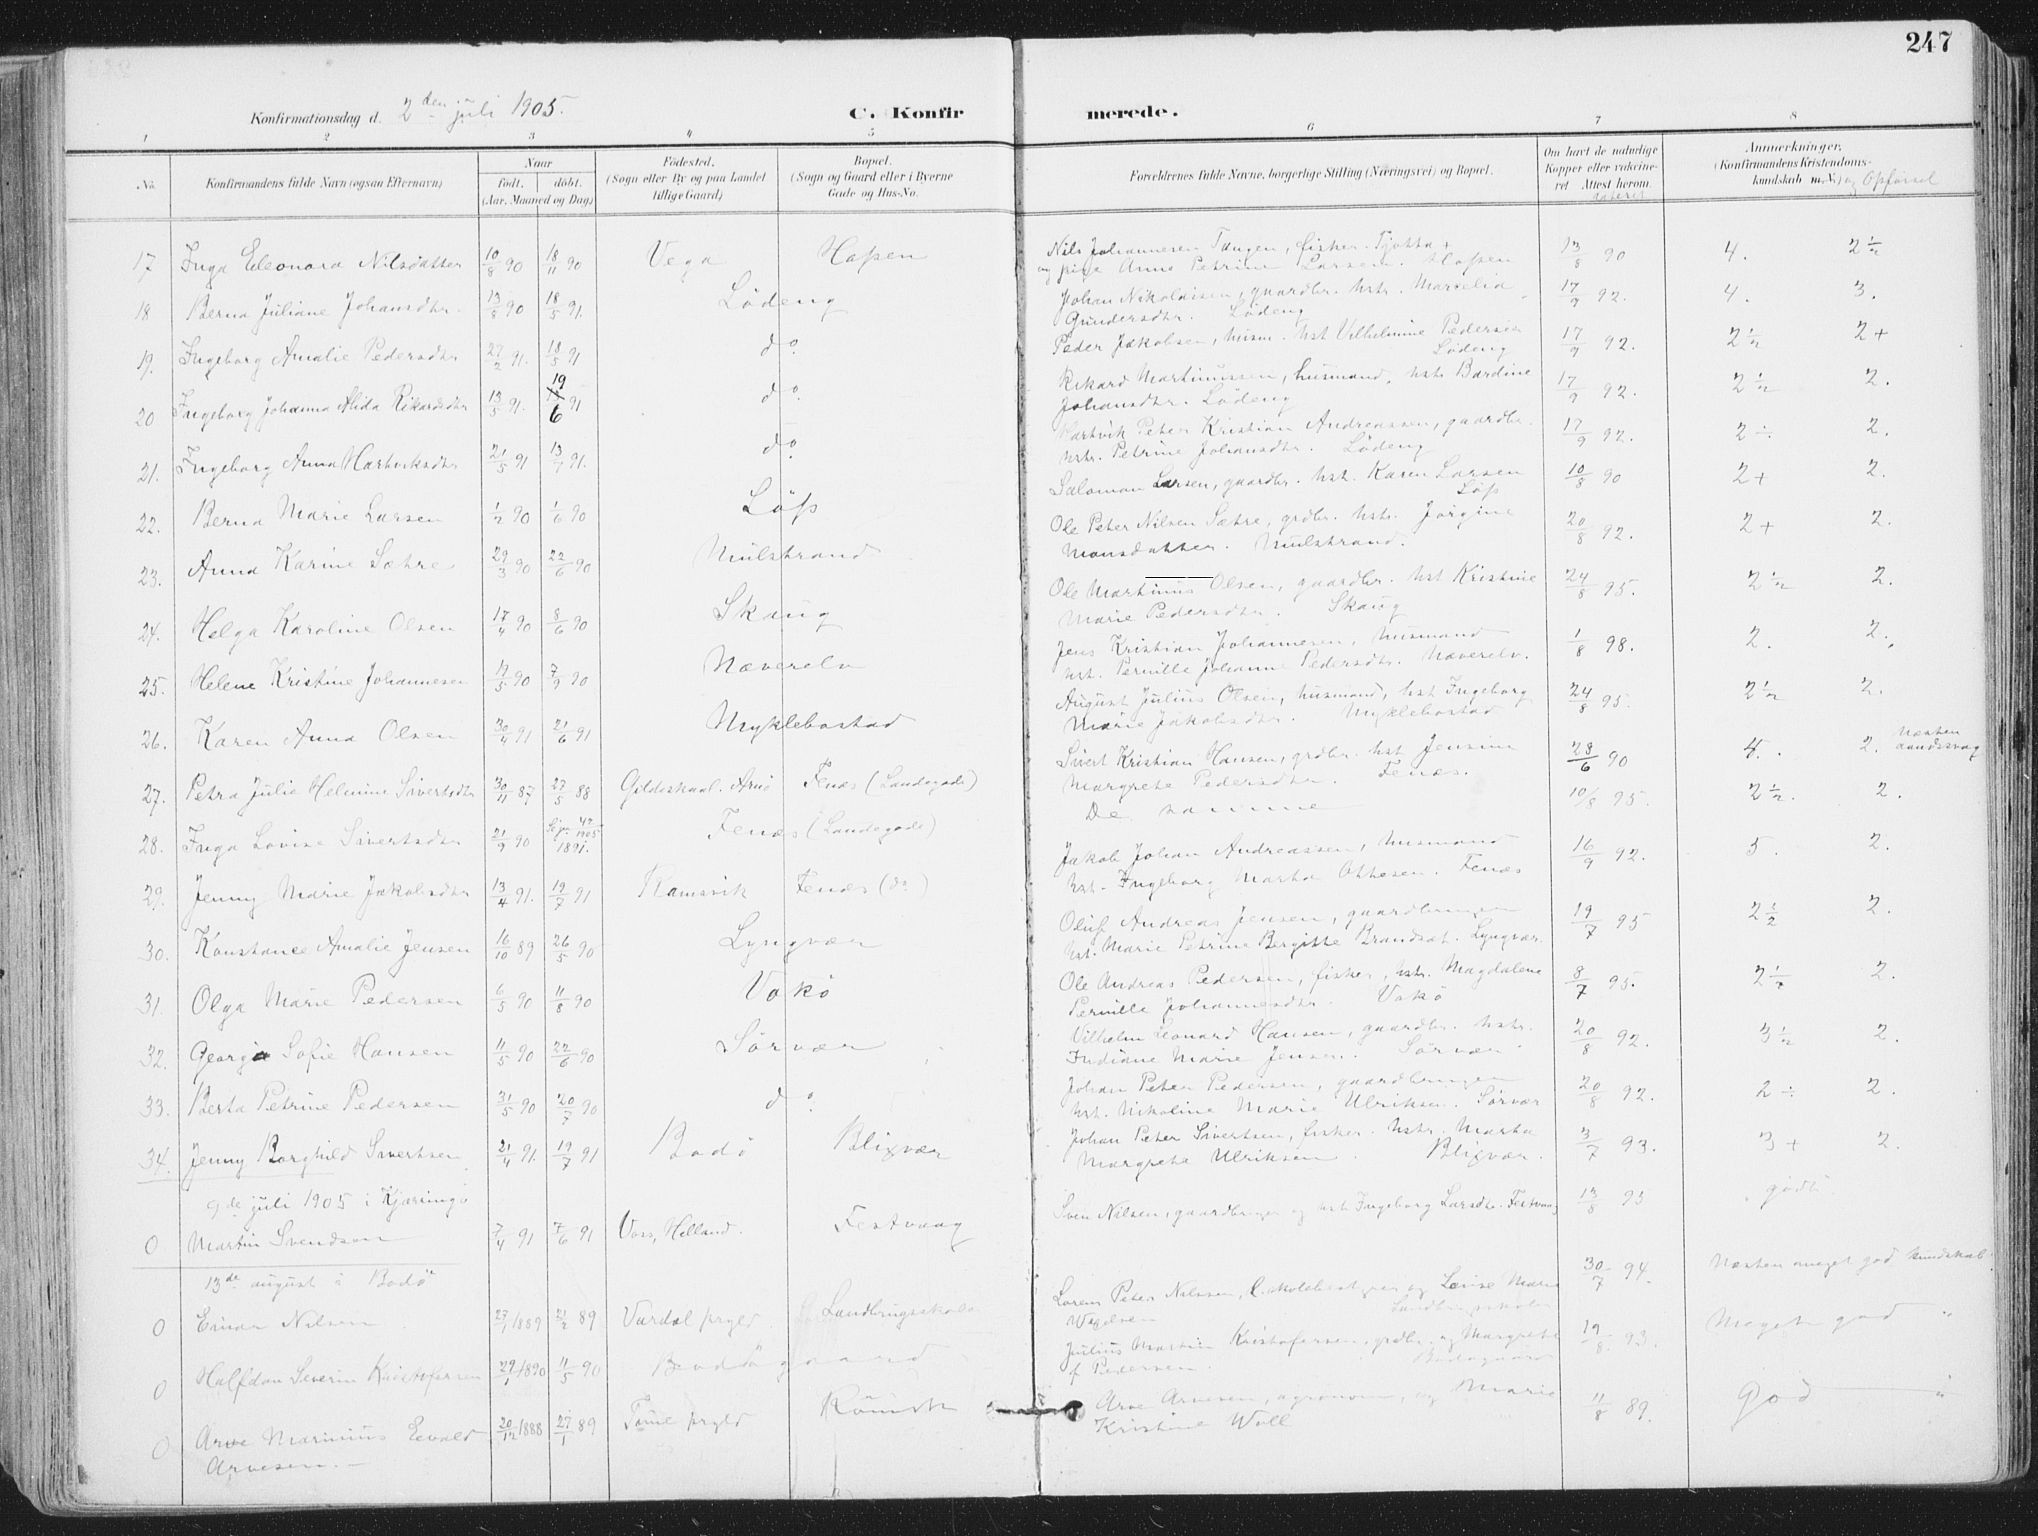 247
Konfirmationsdag d. 2den juli 1905.
C. Konfirmerede.
1 2 3 4 5 6 7 8
No. Konfirmandens fulde Navn (ogsaa Efternavn)
Naar født. døbt. (Aar, Maaned og Dag)
Fødested. (Sogn eller By og paa Landet tillige Gaard)
Bopæl. (Sogn og Gaard eller i Byerne Gade og Hus-No.
Forældrenes fulde Navne, borgerlige Stilling (Næringsvei) og Bopæl.
Om havt de naturlige Kopper eller vakcineret. Attest herom. dateret
Anmerkninger. (Konfirmandens Kristendomskundskab m.V.) og Opførsel
17 Inga Eleonora Nilsdatter 10/8 90 18/11 90 Vega Hopen
Nils Johannesen Tangen, fisker. Tjøtta +
og pige Anne Petrine Larsen. Hopen 13/8 90 4. 2 1/2
18 Berna Juliane Johansdtr. 13/8 90 18/5 91. Løding
Johan Nikolaisen, gaardbr. hstr. Marselia
Gundersdtr. Løding 17/9 92. 4. 3.
19. Ingeborg Amalie Pedersdtr 27/2 91. 18/5 91 do.
Peder Jakobsen, husm. hst Vilhelmine Pedersen
Løding 17/9 92. 2 1/2 2+
20 Ingeborg Johanna Alida Rikardsdtr 13/5 91. 19/6 91 do.
Rikard Martinussen, husmand, hstr Bardine
Johansdtr. Løding 17/9 92. 2 1/2 2.
21. Ingeborg Anna Hartviksdtr 21/5 91 13/7 91. do.
Hartvik Peter Kristian Andreassen, gaardbr.
hstr. Petrine Johansdtr. Løding 17/9 92. 2 ÷ 2.
22. Berna Marie Larsen 1/2 90 1/6 90 Løp
Salomon Larsen, gaardbr. hst. Karen Larsen
Løp 10/8 90 2+ 2.
23. Anna Karine Sætre 29/3 90 22/6 90 Mulstrand
Ole Peter Nilsen Sætre, grdbr. hstr. Jørgine
Monsdatter. Mulstrand. 20/8 92. 2+ 2.
24. Helga Karoline Olsen 17/4 90 8/6 90 Skaug
Ole Martinius Olsen, gaardbr. hst Kristine
Marie Pedersdtr. Skaug 24/8 95. 2 1/2 2.
25. Helene Kristine Johannesen 9/5 90 7/9 90 Næverelv
Jens Kristian Johannesen, husmand
hst. Pernille Johanne Pedersdtr. Næverelv. 1/8 98. 2. 2.
26. Karen Anna Olsen 30/4 91 21/6 91 Myklebostad
August Julius Olsen, husmand, hst Ingeborg
Marie Jakobsdtr. Myklebostad 24/8 95. 2 1/2 2.
27. Petra Julie Helmine Sivertsdtr 30/11 87 27/5 88 Gildeskaal. Arnø Fenæs (Landegode)
Sivert Kristian Hansen, grdbr. hst Jensine
Margrete Pedersdtr. Fenæs. 28/6 90 4. 2. Næsten aandssvag
28. Inga Lovise Sivertsdtr 21/9 90 1891. Fenæs (Landegode)
De samme 10/8 95. 2 1/2. 2.
29. Jenny Marie Jakobsdtr 13/4 91. 19/7 91 Ramsvik Fenæs (do)
Jakob Johan Andreassen, husmand
hst. Ingeborg Marta Ottesen. Fenæs 16/9 92. 5. 2.
30. Konstance Amalie Jensen 16/10 89 26/5 90 Lyngvær
Oluf Andreas Jensen, gaardbruger
hst. Marie Petrine Bergitte Brandsæt. Lyngvær. 19/7 95 2 1/2 2.
31. Olga Marie Pedersen 6/5 90 11/8 90 Vokø
Ole Andreas Pedersen, fisker, hstr. Magdalene
Pernille Johannesdtr. Vokø 8/7 95. 2 1/2 2.
32. Georgia Sofie Hansen 11/5 90 22/6 90 Sørvær
Vilhelm Leonard Hansen, gaardbr. hstr.
Indiane Marie Jensen. Sørvær 20/8 92. 3 1/2 2.
33. Berta Petrine Pedersen 31/5 90 20/7 90 do.
Johan Peter Pedersen, gaardbruger
hst. Nikoline Marie Ulriksen. Sørvær 20/8 92. 2 ÷ 2.
34. Jenny Borghild Sivertsen 21/4 91. 19/7 91 Bodø Blixvær
Johan Peter Sivertsen, fisker. hstr. Marta
Margrete Ulriksen. Blixvær. 3/7 93. 3+ 2.
9de juli 1905 i Kjæringø
0 Martin Svendsen 7/4 91 7/6 91 Voss, Helland. Festvaag
Sven Nilsen, gaardbruger og hstr Ingeborg Larsdtr. Festvaag 13/8 95 godt.
13de august i Bodø
0 Einar Nilsen 27/1 1889 21/2 89 Værdal prgld. Landbrugsskolen
Lorens Peter Nilssen, og Lovise Marie 30/7 94. Næsten meget god kundskab.
0 Halfdan Severin Kristofersen 29/1 1890 11/5 90 Bodøgaard
Julius Martin Kristofersen, grdbr. og Margrete
f Pedersen. Bodøgaard 19/8 93. Meget god "
0 Arve Marinius Evald Arvesen. 20/12 1888 27/1 89 prgld Rønvik
Arve Arvesen, agronom, og Marie
Kristine Woll 11/8 89. God "